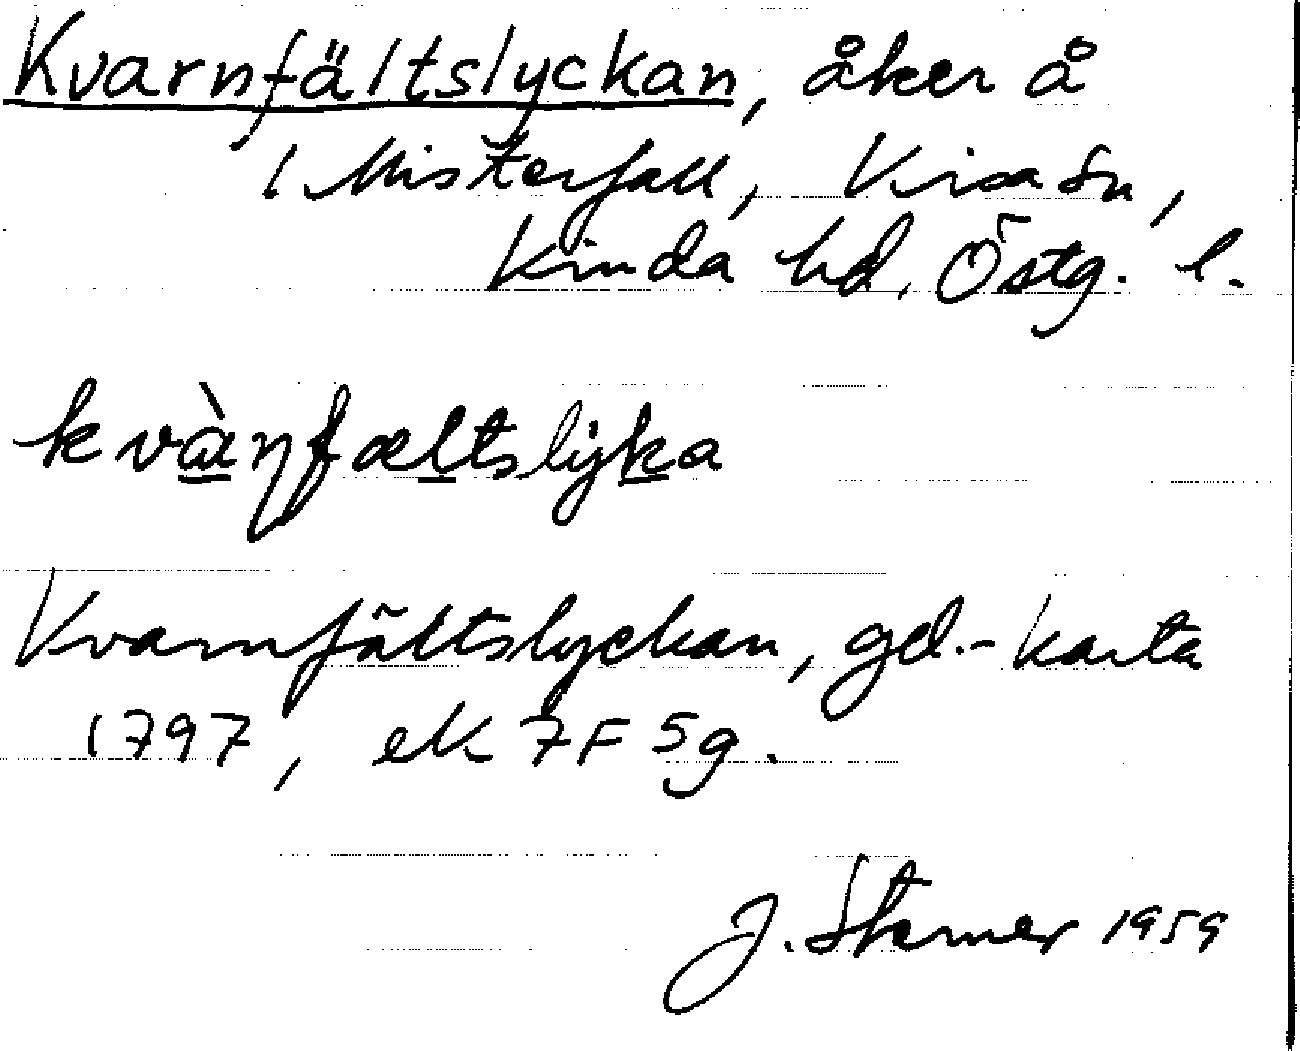 Kvarnfältslyckan, åker å
1 Misterfall, Kisa sn,
Kinda hd, Östg. l.
kvàɳfæltslyka
Kvarnfältslyckan, gd.-karta
1797, ek 7F 5g.
J. Starner 1959